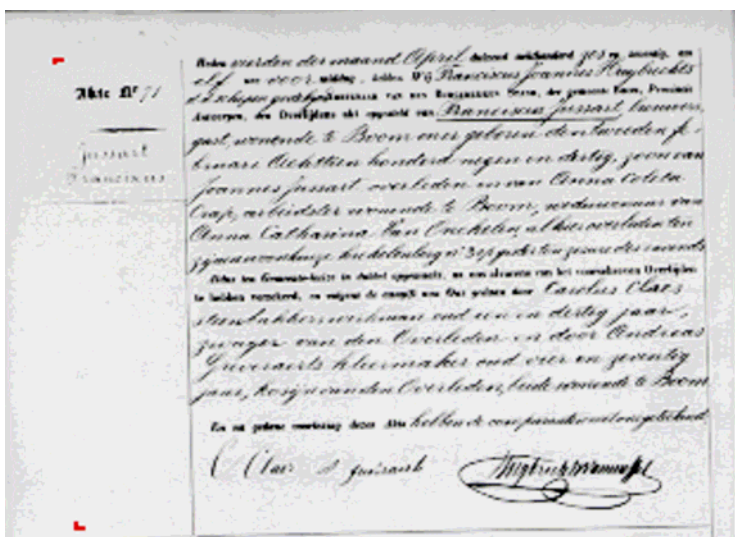 Heden vierden der maand April duizend achthonderd zes en zeventig, om
elf uren voor middag, hebben Wij Franciscus Joannes Huybrechts
Akte Nr 71
schepen van den Burgerlijken Stand, der gemeente Boom, Provincie
Antwerpen, den Overlijdens akt opgesteld van Franciscus Jussart, brouwers
gast, wonende te Boom geboren den tweeden fe
bruari Achttien honderd negen en dertig, zoon van
Jussart
Franciscus
Joannes Jussart overleden en van Anna Coleta
Crap, arbeidster wonende te Boom, weduwnaar van
Anna Catharina Van alhier overleden ten
zijnen woonhuize ten zes ure des avonds
Aldus ten Gemeente-huize in dubbel opgemaakt, na ons alvorens van het voorschreven Overlijden
te hebben verzekerd, en volgens de aangift aan Ons gedaan door Carolus Claes
steenbakkers werkman oud een en dertig jaar,
zwager van den Overleden en door Andreas
kleermaker oud vier en zeventig
jaar, kozijn van den Overleden, beide wonende te Boom
En na gedane voorlezing dezer Akte hebben de comparanten met ons geteekend
C Claes